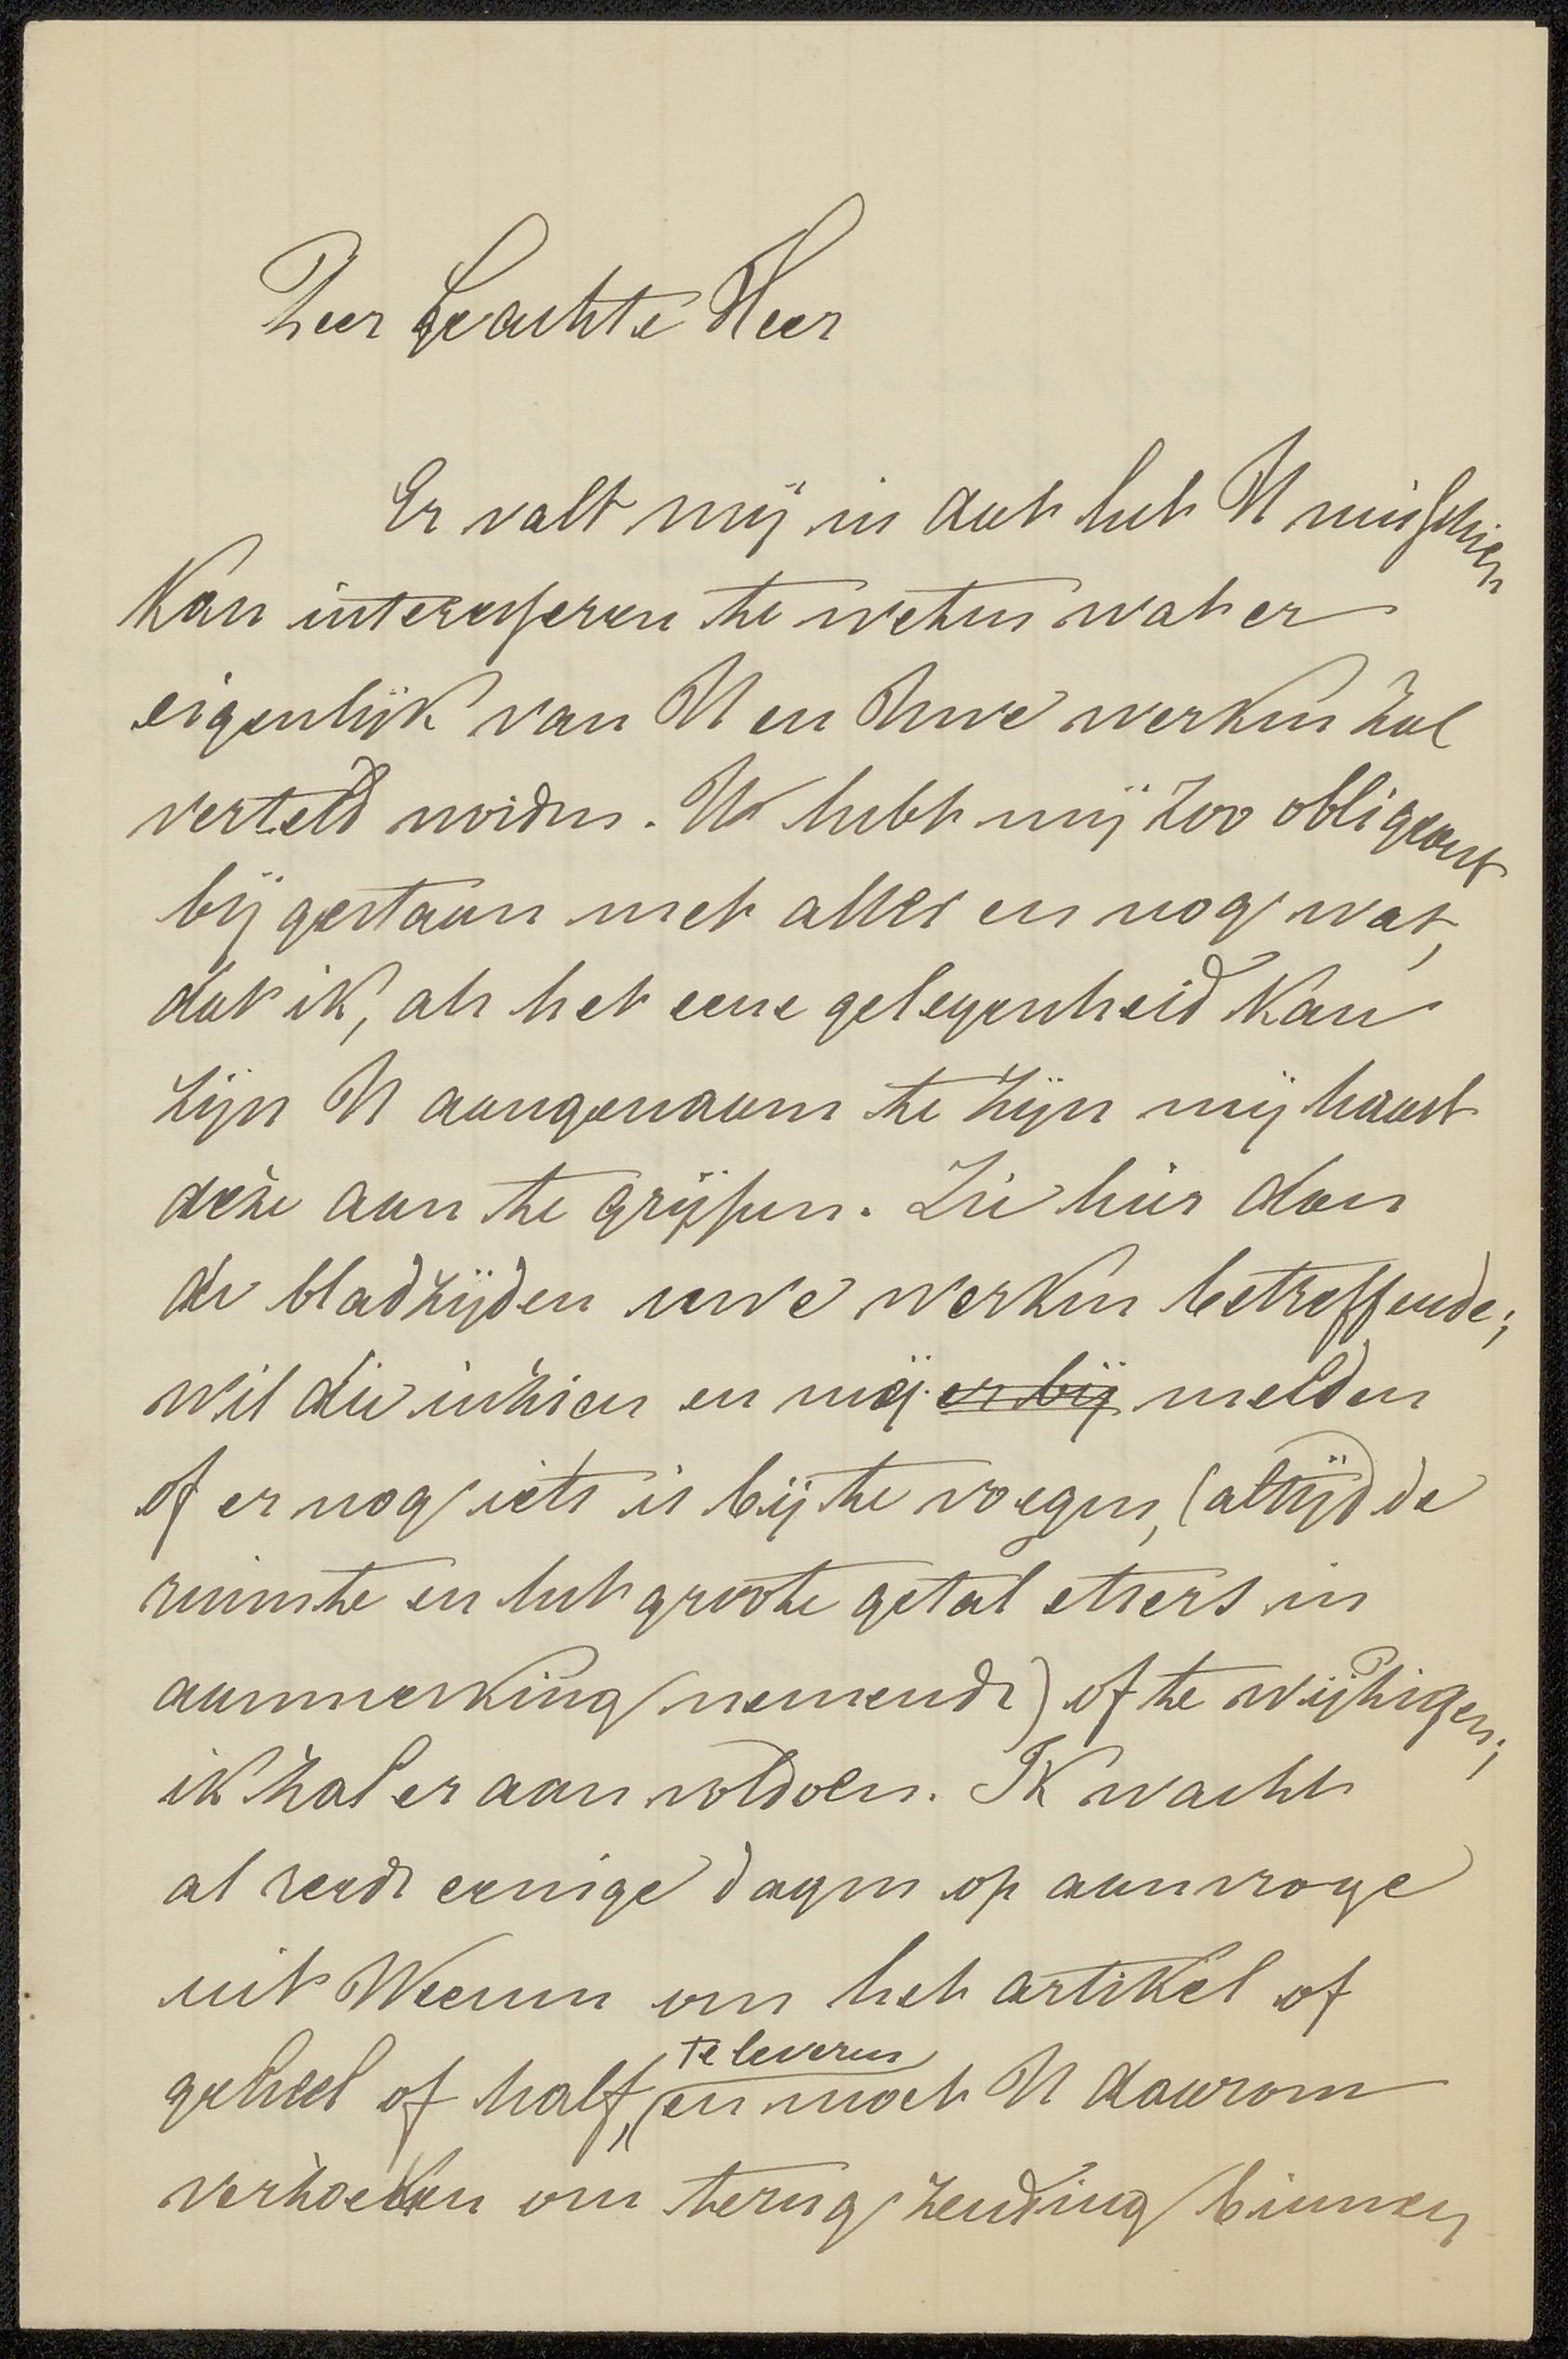 Zeer Geachte Heer
Er valt mij in dat het U misschien
kan interesseren te weten wat er
eigenlijk van U en Uwe werken zal
verteld worden. U hebt mij zoo obligeant
bijgestaan met alles en nog wat,
dat ik, als het eene gelegenheid kan
zijn U aangenaam te zijn mij haast
deze aan te grijpen. Zie hier dan
de bladzijden uwe werken betreffende;
wil die inzien en mij er bij melden
of er nog iets is bij te voegen, (altijd de
ruimte en het groote getal etsers in
aanmerking nemende) of te wijzigen;
ik zal er aan voldoen. Ik wacht
al reeds eenige dagen op aanvrage
uit Weenen om het artikel of
geheel of half, te leveren en moet U daarom
verzoeken om terugzending binnen